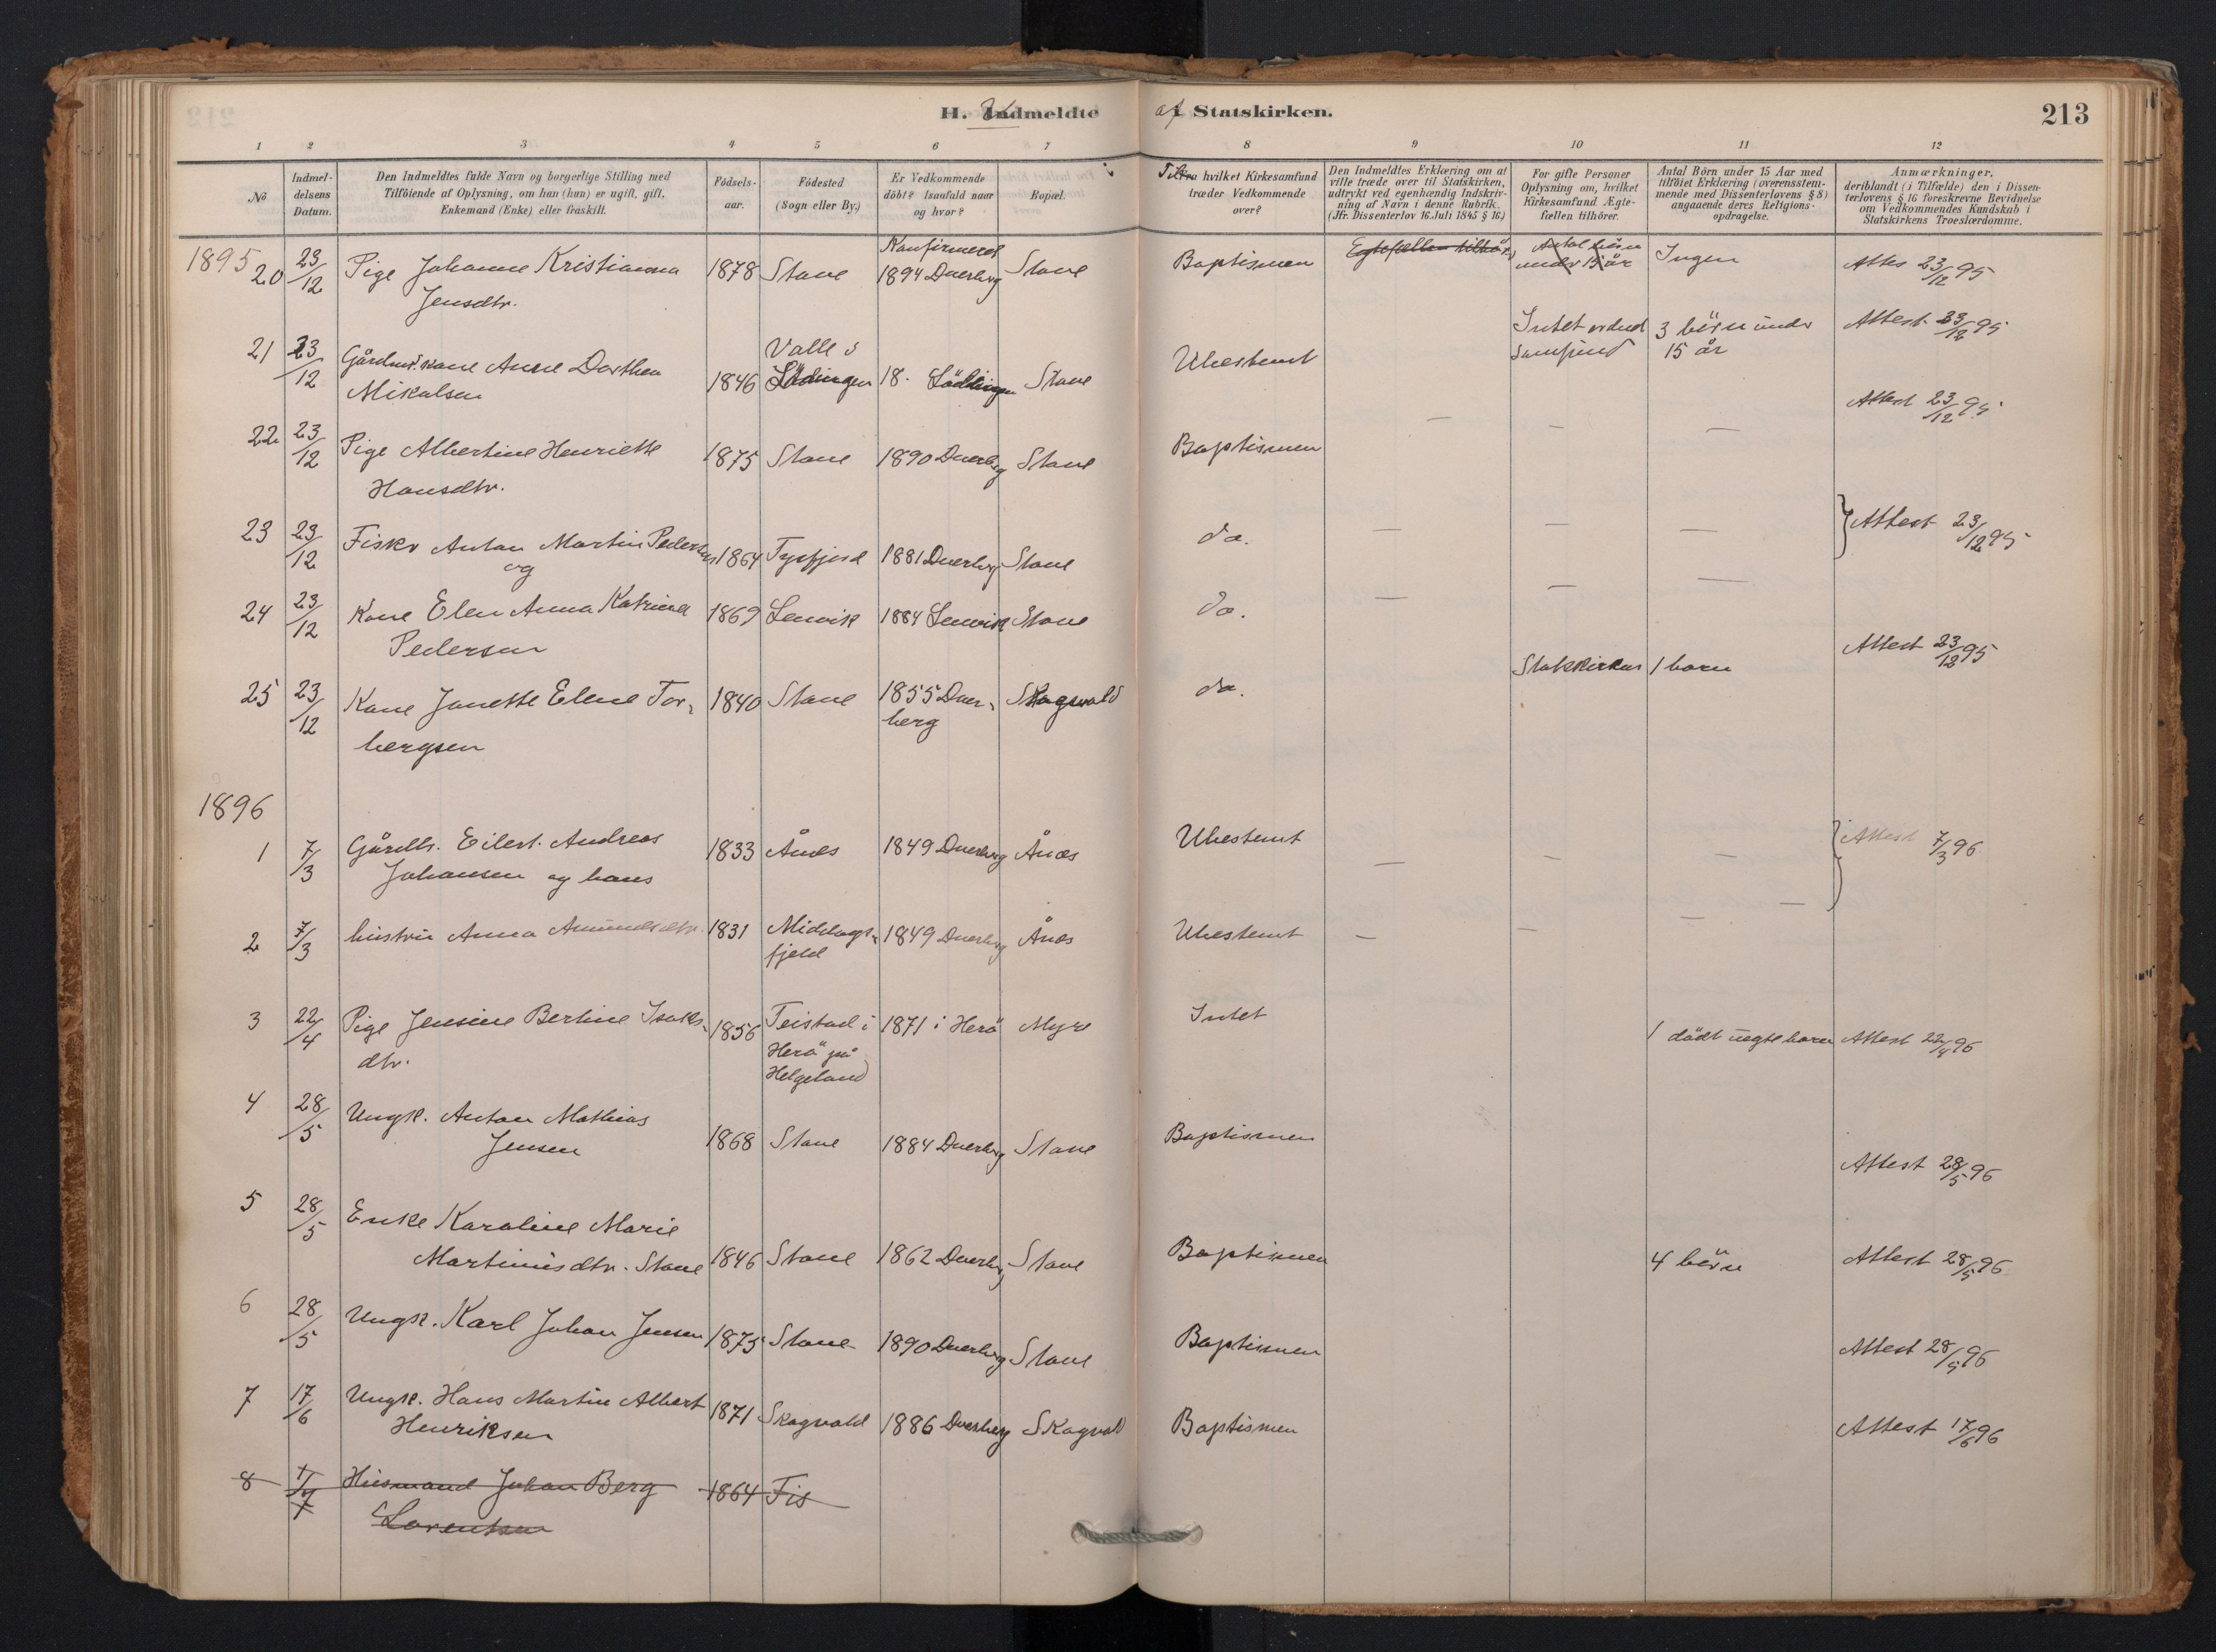 H. Udmeldte af Statskirken.
213
1 2 3 4 5 6 7 8 9 10 11 12
No
Indmeldelsens Datum.
Den Indmeldtes fulde Navn og borgerlige Stilling med
Tilföiende af Oplysning, om han (hun) er ugift, gift,
Enkemand (Enke) eller fraskilt.
Födsels-
aar.
Födested
(Sogn eller By.)
Er Vedkommende
döbt? Isaafald naar
og hvor?
Bopæl.
Til hvilket Kirkesamfund
træder Vedkommende
over?
Den Indmeldtes Erklæring om at
ville træde over til Statskirken,
udtrykt ved egenhændig Indskriv-
ning af Navn i denne Rubrik.
(Jfr. Dissenterlov 16. Juli 1845 § 16.)
For gifte Personer
Oplysning om, hvilket
Kirkesamfund Ægte-
fællen tilhörer.
Antal Börn under 15 Aar med
tilföiet Erklæring (overensstem-
mende med Dissenterlovens § 8)
angaaende deres Religions-
opdragelse.
Anmærkninger,
deriblandt (i Tilfælde) den i Dissen-
terlovens § 16 foreskrevne Bevidnelse
om Vedkommendes Kundskab i
Statskirkens Troeslærdomme.
1895
20 23/12 Pige Johanne Kristianna 1878 Stave Konfirmeret 1894 Dverberg Stave Baptismen Egtefællen tilhör Antal börn under 15 år Ingen Attes 23/12 95
Jensdtr.
21 23/12 Gårdm. kone Anne Dorthea 1846 Valle i Lödingen 18. Lödingen Stave Ubestemt Intet ordnet Samfund 3 börn under 15 år Attest 23/12 95
Mikalsen
22 23/12 Pige Albertine Henriette 1875 Stave 1890 Dverberg Stave Baptismen — — — Attest 23/12 95
Hansdtr.
23 23/12 Fisker Anton Martin Pedersen 1864 Tysfjord 1881 Dverberg Stave do. — — — Attest 23/12 95
og
24 23/12 Kone Elen Anna Katrina 1869 Lenvik 1884 Lenvik Stave do. — — —
Pedersen
25 23/12 Kone Janette Elene Tor- 1840 Stave 1855 Dver- Skogvold do. Statskirken 1 barn Attest 23/12 95
bergsen berg
1896
1 7/3 Gårdb. Eilert Andreas 1833 Ånes 1849 Dverberg Ånes Ubestemt — — — Attest 7/3 96
Johansen og hans
2 7/3 hustru Anna Amundsdtr. 1831 Middags- 1849 Dverberg Ånes Ubestemt — — — —
fjeld
3 22/4 Pige Jensine Bertine Isaks- 1856 Teistad i 1871 i Herö Myre Intet 1 dödt uegte barn Attest 22/4 96
dtr. Herö på
Helgeland
4 28/5 Ungk. Anton Mathias 1868 Stave 1884 Dverberg Stave Baptismen Attest 28/5 96
Jensen
5 28/5 Enke Karoline Marie
Martinusdtr. Stave 1846 Stave 1862 Dverberg Stave Baptismen 4 börn Attest 28/5 96
6 28/5 Ungk. Karl Johan Jensen 1875 Stave 1890 Dverberg Stave Baptismen Attest 28/5 96
7 17/6 Ungk. Hans Martin Albert 1871 Skogvold 1886 Dverberg Skogvold Baptismen Attest 17/6 96
Henriksen
8 Husmand Johan Berg 1864 Fis
Lorentsen